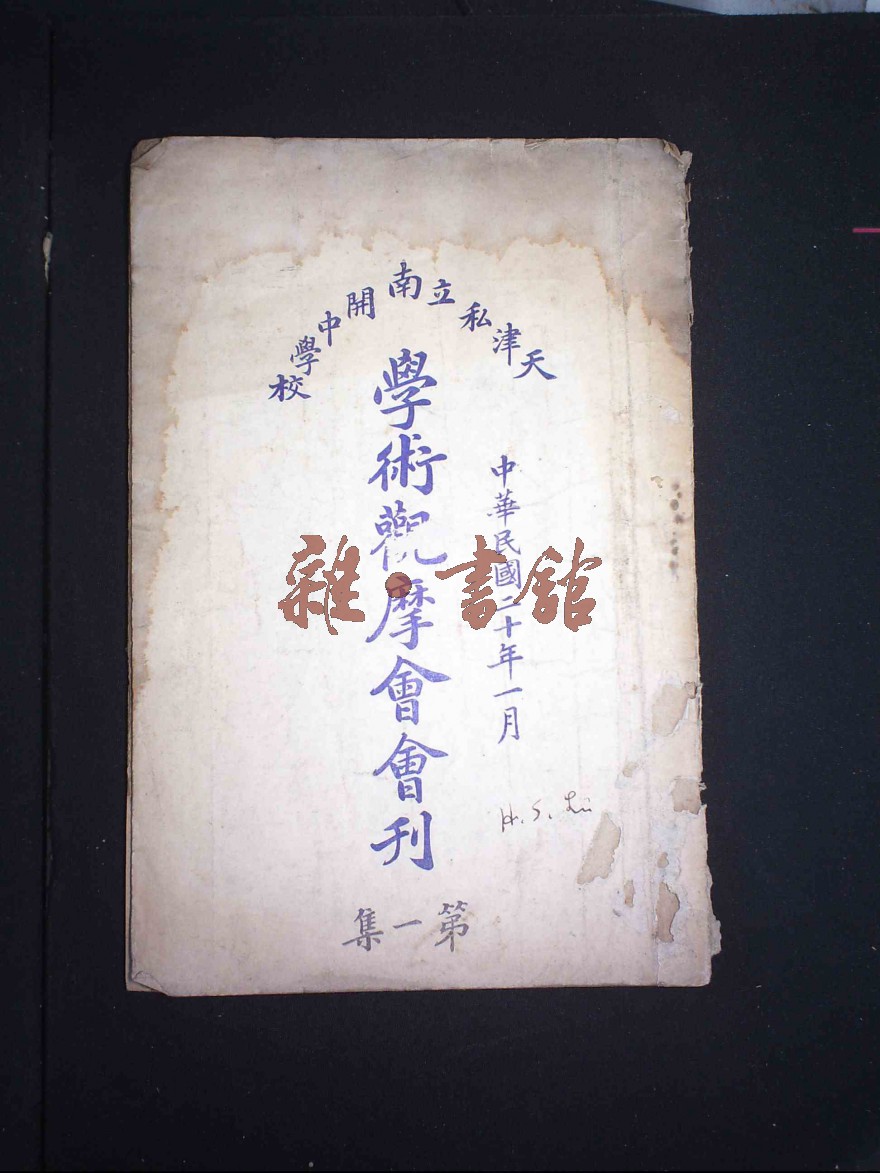 天津私立南開中學校
中華民國二十年一月
學術觀摩會會刊
第一集
H. S. Liu
雜·書館